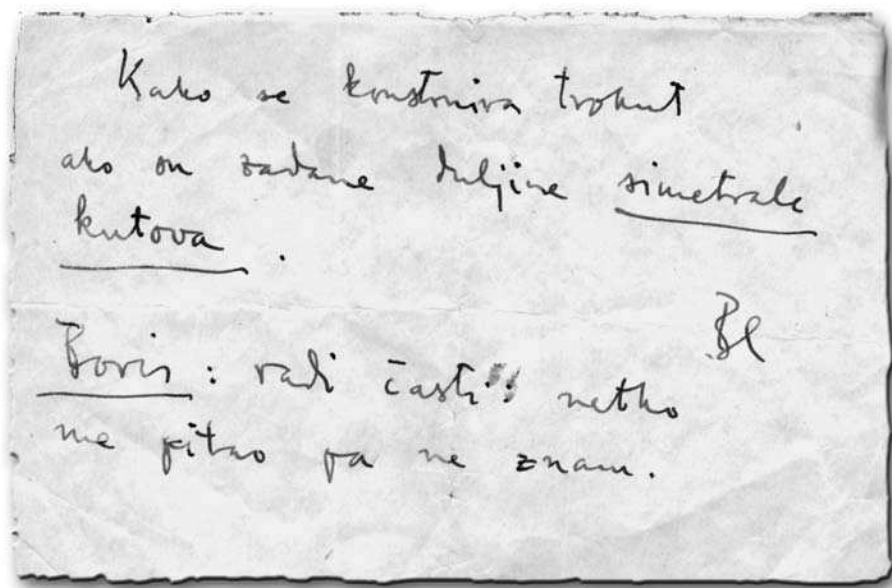 Kako se konstruira trokut
ako su zadane duljine simetrale
kutova.
Bl
Boris: radi časti netko
me pitao pa ne znam.